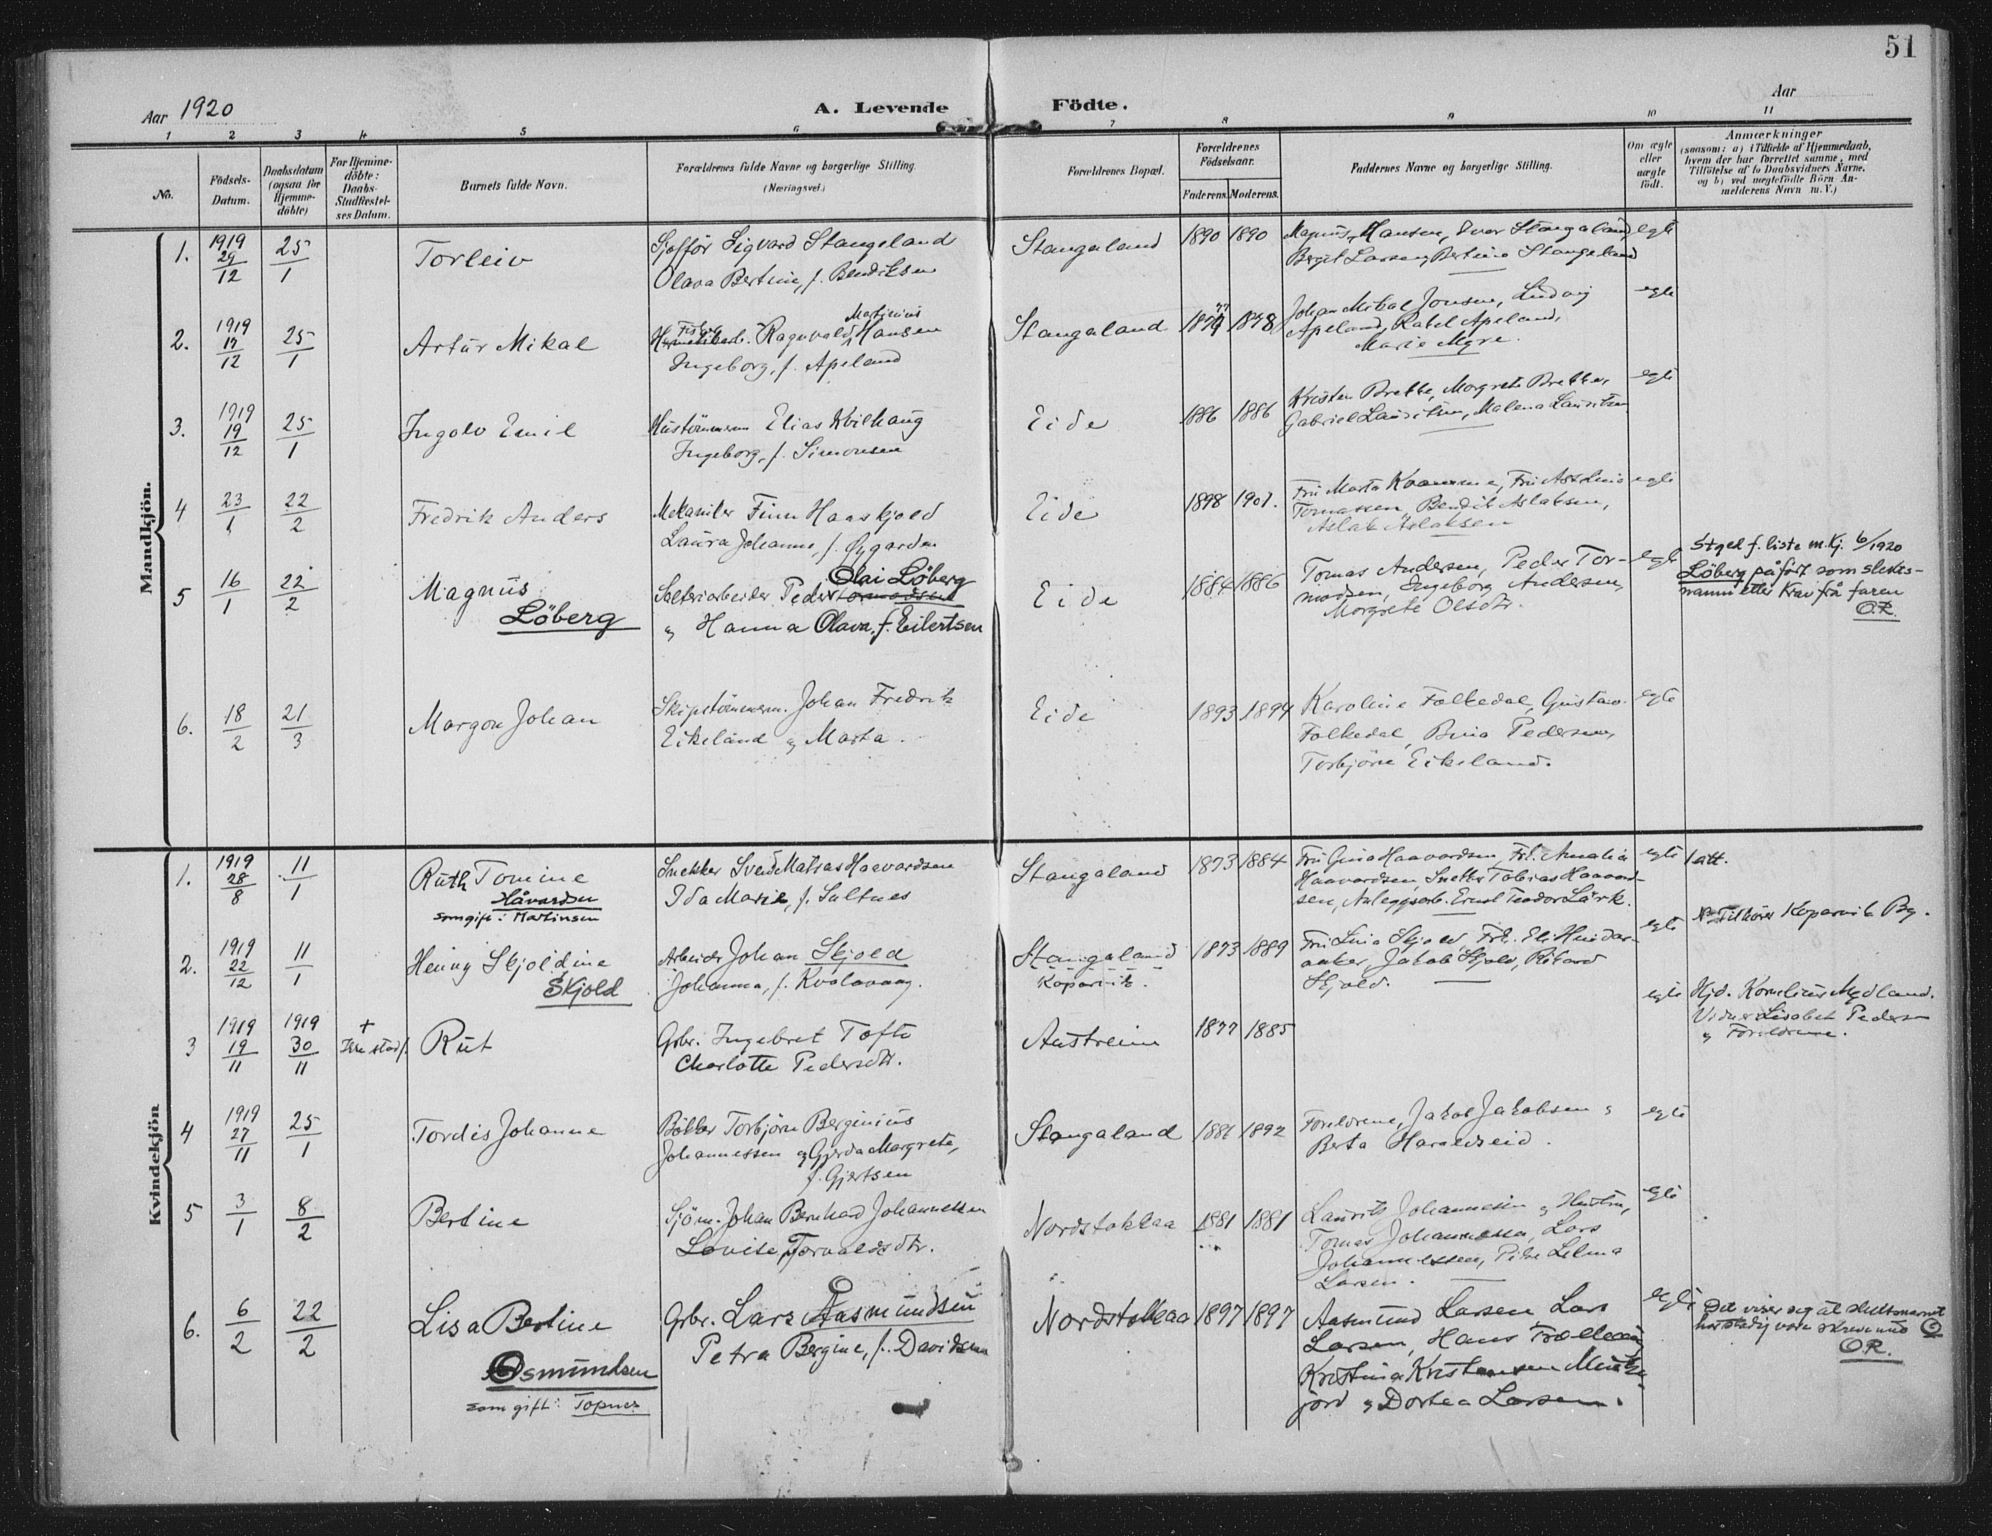 51
Aar 1920
A. Levende Födte.
Aar
1 2 3 4 5 6 7 8 9 10 11
No.
Födsels-Datum.
Daabsdatum (ogsaa for Hjemme-döbte)
For Hjemme-döbte: Daabs-Stadfæstel-ses Datum.
Barnets fulde Navn.
Forældrenes fulde Navne og borgerlige Stilling. (Næringsvei.)
Forældrenes Bopæl.
Forældrenes Födselsaar.
Faderens. Moderens.
Faddernes Navne og borgerlige Stilling.
Om ægte eller uægte födt.
Anmærkninger
(saasom: a) i Tilfælde af Hjemmedaab, hvem der har forrettet samme, med Tilföielse af to Daabsvidners Navne, og b) ved uægtefödte Börn An-melderens Navn m. V.)
Mandkjön.
1. 1919 29/12 25/1 Torleiv
Sjofför Sigvard Stangeland
Olava Bertine, f. Bendiksen
Stangaland 1890 1890
Magnus Hansen, Ivar Stangaland,
Bergit Larsen, Bertine Stangeland
egte
2. 1919 25/1 Artur Mikal
Ragnvald Martinius Hansen
Ingeborg, f. Apeland
Stangaland 1878
Johan Mikal Jonsen, Ludvig
Apeland, Rakel Apeland,
Marie Myre.
egte
3. 1919 19/12 25/1 Ingolv Emil
Hustömmerm Elias Kvilhaug
Ingeborg, f. Simonsen
Eide 1886 1886
Kristen Brekke, Margrete Brekke,
Gabriel Lauritsen, Malena Lauritsen
egte
4 23/1 22/2 Fredrik Anders
Mekaniker Finn Haaskjold
Laura Johanne, f. Øygarden
Eide 1898 1901.
Fru Marta
Tomassen, Bendik Aslaksen,
Aslak Aslaksen
egte
5 16/1 22/2 Magnus
Löberg
Salteriarbeider Peder Olai Löberg
" Hanna Olava, f. Eilertsen
Eide 1884 1886
Tomas Andersen, Peder Tor-
modsen, Ingeborg Andersen,
Margrete Olsdtr.
egte
Stged f. liste m. Kj. 6/1920
Löberg påfört som slekts-
namn etter krav frå faren
O.R.
6. 18/2 21/3 Margon Johan
Skipstömmerm. Johan Fredrik
Eikeland og Marta.
Eide 1893 1894
Karoline Falkedal, Gustav
Falkedal, Pedersen,
Torbjörn Eikeland.
egte
Kvindekjön
1. 1919 28/8 11/1 Ruth Tomine
Håvardsen
som gift: Martinsen
Snekker Svend Matias Haavardsen
Ida Marie, f. Saltnes
Stangaland 1873 1884
Fru Gina Haavardsen, Frk. Amalia
Haavardsen, Snekker Tobias Haavard-
sen, Anleggsarb. Ernst Teodor Lärk.
egte
1 att.
2. 1919 22/12 11/1 Henny Skjoldine
Skjold
Arbeider Johan Skjold
Johanna, f. Kvalavaag.
Stangaland
Kopervik.
1873 1889
Fru Lina Skjold, Frk. Eli Hindar-
aaker, Jakob Skjold, Rikard
Skjold.
egte
Tilhörer Kopervik By.
3 1919 19/11 1919 30/11 + Ikke stadf. Rut
Grbr. Ingebret Tofte
Charlotte Pedersdtr.
Austreim 1877 1885
egte
Hjd. Kornelius Mydland.
Vidner Lisabet Pedersen
og Foreldrene.
4 1919 27/11 25/1 Tordis Johanne
Bökker Torbjörn Berginius
Johannessen og Gjerda Margrete,
f. Gjertsen
Stangaland 1881 1892
Foreldrene, Jakob Jakobsen og
Berta Haraldseid.
egte
5 3/1 8/2 Bertine
Sjöm. Johan Bernhard Johannessen
Lovise Torvaldsdtr.
Nordstokkaa 1881 1881
Laurits Johannessen og Hustru,
Tomas Johannessen, Lars
Johannessen, Selma
Larsen.
egte
6. 6/2 22/2 Lisa Bertine
Osmundsen
som gift: Topnes
Grbr. Lars Aasmundsen
Petra Bergine, f. Davidsen
Nordstokkaa 1897 1897
Aasmund Larsen, Lars
Larsen, Hans
Kristina Kristensen
og Dortea Larsen.
egte
Det viser seg at slektsnamnet
har stadig vore skreve med O
O.R.